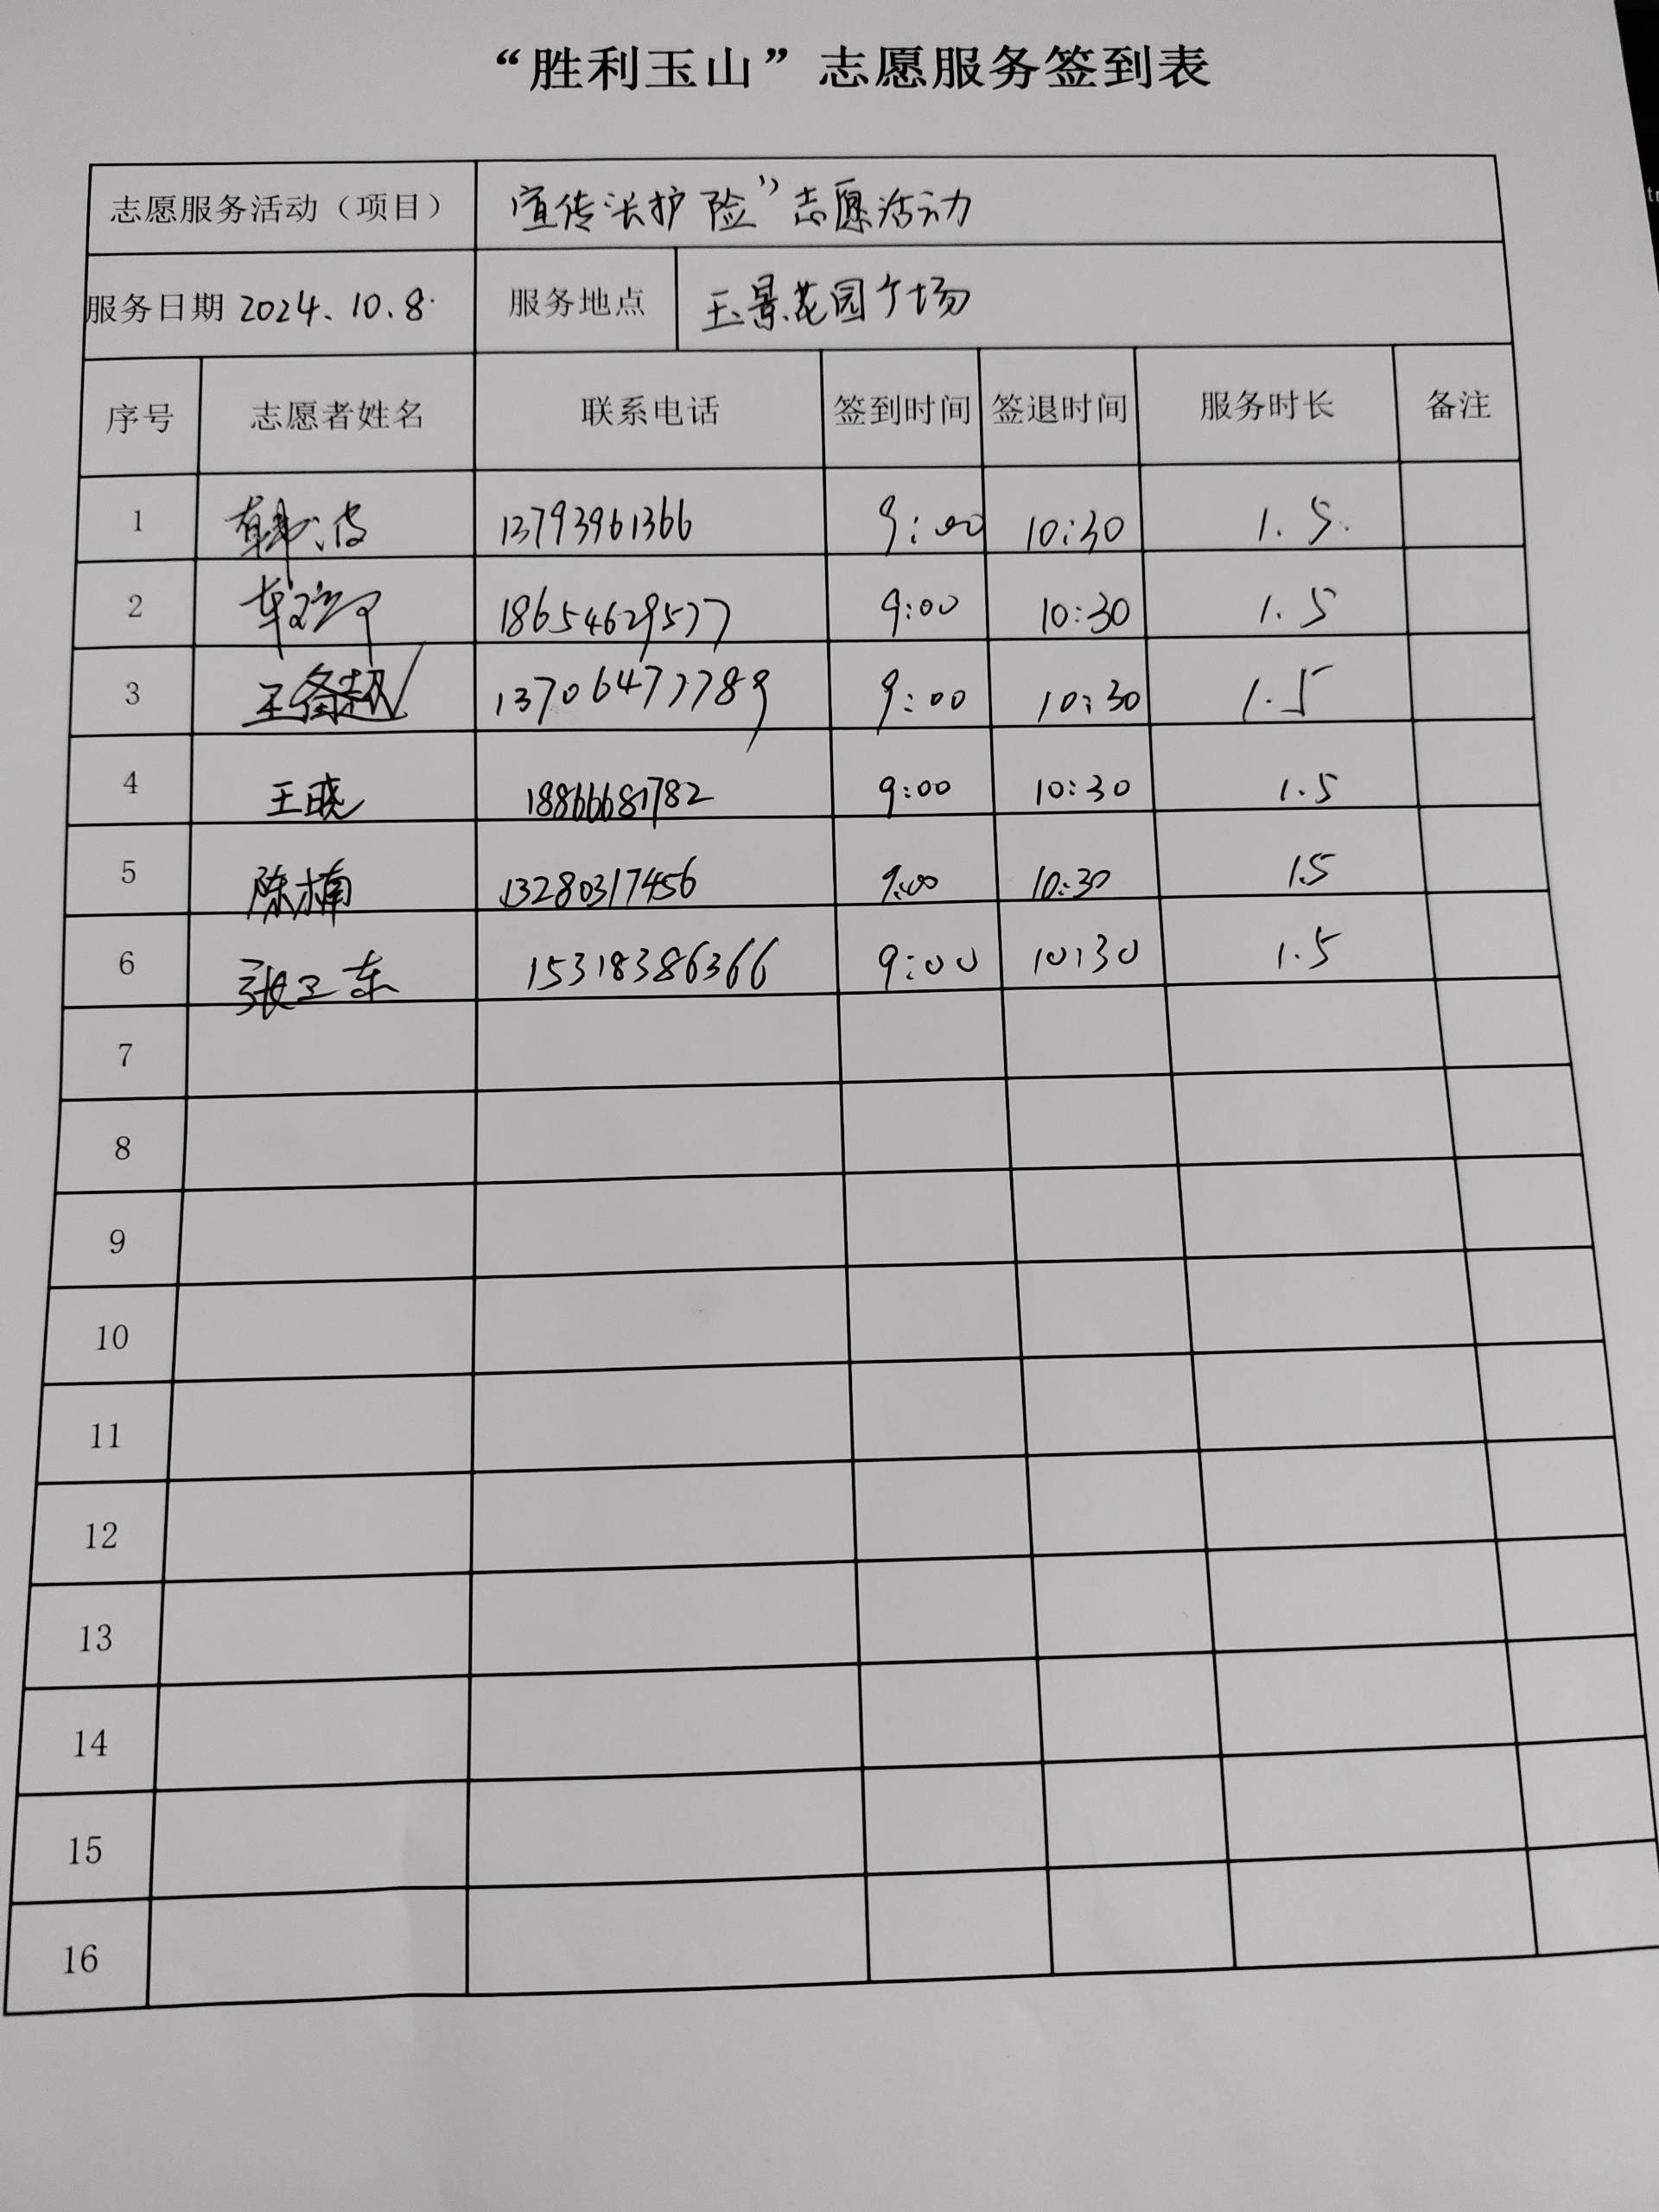 “胜利玉山”志愿服务签到表
志愿服务活动（项目） 宣传长护险”志愿活动
服务日期 2024.10.8. 服务地点 玉景花园广场
序号 志愿者姓名 联系电话 签到时间 签退时间 服务时长 备注
1 韩波 13793961366 9:00 10:30 1.5.
2 18654629577 9:00 10:30 1.5
3 13706477789 9:00 10:30 1.5
4 王晓 18866681782 9:00 10:30 1.5
5 陈楠 13280317456 9:00 10:30 1.5
6 张卫东 15318386366 9:00 10:30 1.5
7
8
9
10
11
12
13
14
15
16